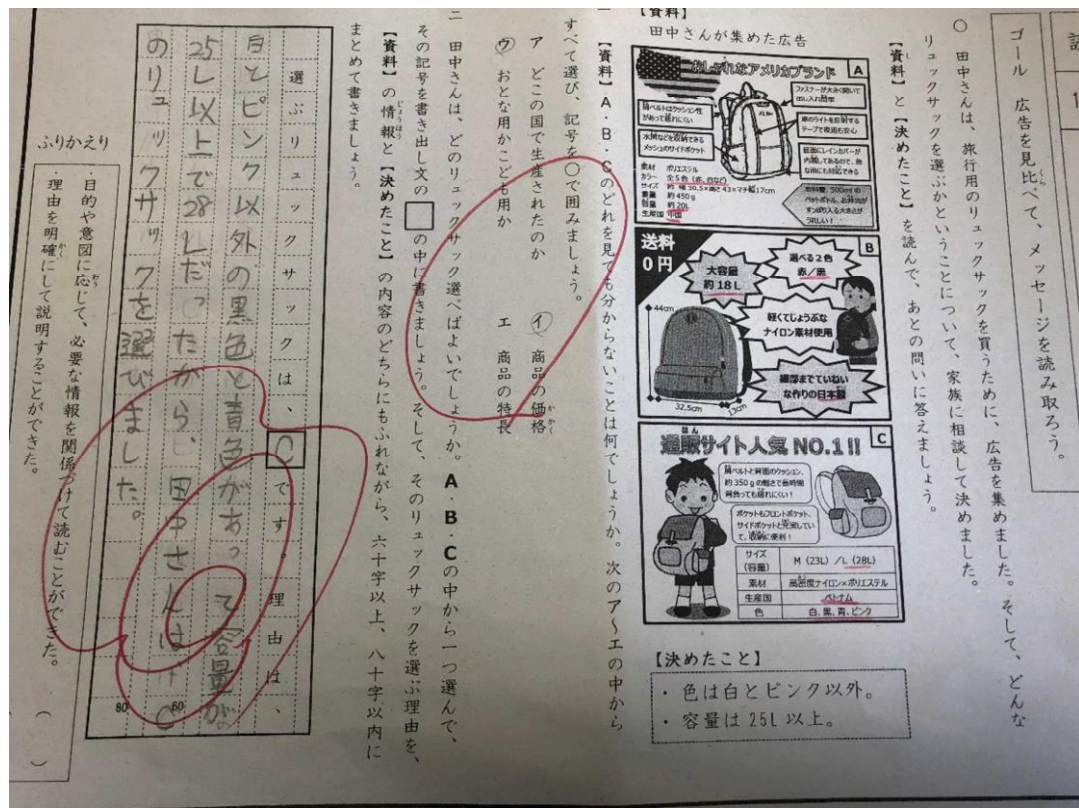 ゴール　広告を見比べて、メッセージを読み取ろう。
○　田中さんは、旅行用のリュックサックを買うために、広告を集めました。そして、どんな
リュックサックを選ぶかということについて、家族に相談して決めました。
【資料】と【決めたこと】を読んで、あとの問いに答えましょう。
【資料】
田中さんが集めた広告
A
おしゃれなアメリカブランド
肩ベルトはクッション性
があって疲れにくい
水筒などを収納できる
メッシュのサイドポケット
ファスナーが大きく開いて
出し入れ簡単
車のライトを反射する
テープで夜道も安心
底面にレインカバーが
内蔵してあるので、急
な雨にも対応できる
素材　ポリエステル
カラー　全5色（赤、白など）
サイズ　約 幅30.5×高さ43×マチ幅17cm
重量　約450g
容量　約20L
生産国　中国
教科書、500mlの
ペットボトル、お弁当が
すっぽり入る大きさが
うれしい！
B
送料
0円
大容量
約18L
選べる2色
赤／黒
軽くてじょうぶな
ナイロン素材使用
細部までていねい
な作りの日本製
44cm
32.5cm
13cm
C
通販サイト人気 NO.1!!
肩ベルトと背面のクッション、
約350gの軽さで長時間
背負っても疲れにくい！
ポケットもフロントポケット、
サイドポケットと充実してい
て、収納に便利！
サイズ（容量）　M（23L）／L（28L）
素材　高密度ナイロン×ポリエステル
生産国　ベトナム
色　白、黒、青、ピンク
【決めたこと】
・色は白とピンク以外。
・容量は25L以上。
一　【資料】A・B・Cのどれを見ても分からないことは何でしょうか。次のア〜エの中から
すべて選び、記号を○で囲みましょう。
ア　どこの国で生産されたのか
イ　商品の価格
ウ　おとな用かこども用か
エ　商品の特長
二　田中さんは、どのリュックサック選べばよいでしょうか。A・B・Cの中から一つ選んで、
その記号を書き出し文の□の中に書きましょう。そして、そのリュックサックを選ぶ理由を、
【資料】の情報と【決めたこと】の内容のどちらにもふれながら、六十字以上、八十字以内に
まとめて書きましょう。
選ぶリュックサックは、Cです。理由は、
白とピンク以外の黒色と青色があって容量が
25L以上で28Lだったから、田中さんはC
のリュックサックを選びました。
60
80
ふりかえり
・目的や意図に応じて、必要な情報を関係づけて読むことができた。
・理由を明確にして説明することができた。